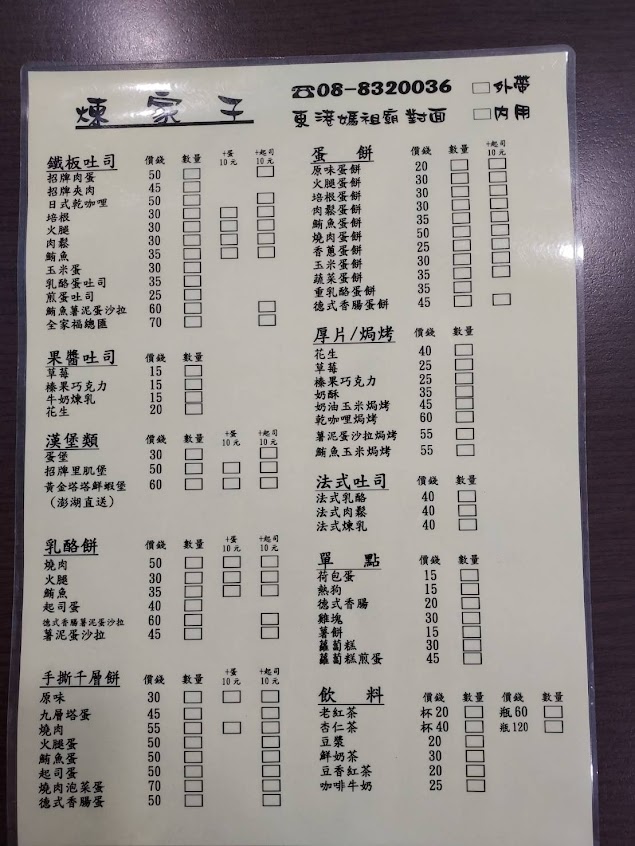 煉家子
☎08-8320036 □外帶
東港媽祖廟對面 □內用
鐵板吐司 價錢 數量 +蛋10元 +起司10元
招牌肉蛋 50
招牌夾肉 45
日式乾咖哩 50
培根 30
火腿 30
肉鬆 30
鮪魚 35
玉米蛋 30
乳酪蛋吐司 35
煎蛋吐司 25
鮪魚薯泥蛋沙拉 60
全家福總匯 70
果醬吐司 價錢 數量
草莓 15
榛果巧克力 15
牛奶煉乳 15
花生 20
漢堡類 價錢 數量 +蛋10元 +起司10元
蛋堡 30
招牌里肌堡 50
黃金塔塔鮮蝦堡 60
(澎湖直送)
乳酪餅 價錢 數量 +蛋10元 +起司10元
燒肉 50
火腿 30
鮪魚 35
起司蛋 40
德式香腸薯泥蛋沙拉 60
薯泥蛋沙拉 45
手撕千層餅 價錢 數量 +蛋10元 +起司10元
原味 30
九層塔蛋 45
燒肉 55
火腿蛋 50
鮪魚蛋 50
起司蛋 50
燒肉泡菜蛋 70
德式香腸蛋 50
蛋餅 價錢 數量 +起司10元
原味蛋餅 20
火腿蛋餅 30
培根蛋餅 30
肉鬆蛋餅 30
鮪魚蛋餅 35
燒肉蛋餅 50
香蔥蛋餅 25
玉米蛋餅 30
蔬菜蛋餅 35
重乳酪蛋餅 35
德式香腸蛋餅 45
厚片/焗烤 價錢 數量
花生 40
草莓 25
榛果巧克力 25
奶酥 35
奶油玉米焗烤 45
乾咖哩焗烤 60
薯泥蛋沙拉焗烤 55
鮪魚玉米焗烤 55
法式吐司 價錢 數量
法式乳酪 40
法式肉鬆 40
法式煉乳 40
單點 價錢 數量
荷包蛋 15
熱狗 15
德式香腸 20
雞塊 30
薯餅 15
蘿蔔糕 30
蘿蔔糕煎蛋 45
飲料 價錢 數量 價錢 數量
老紅茶 杯20 瓶60
杏仁茶 杯40 瓶120
豆漿 20
鮮奶茶 30
豆香紅茶 20
咖啡牛奶 25